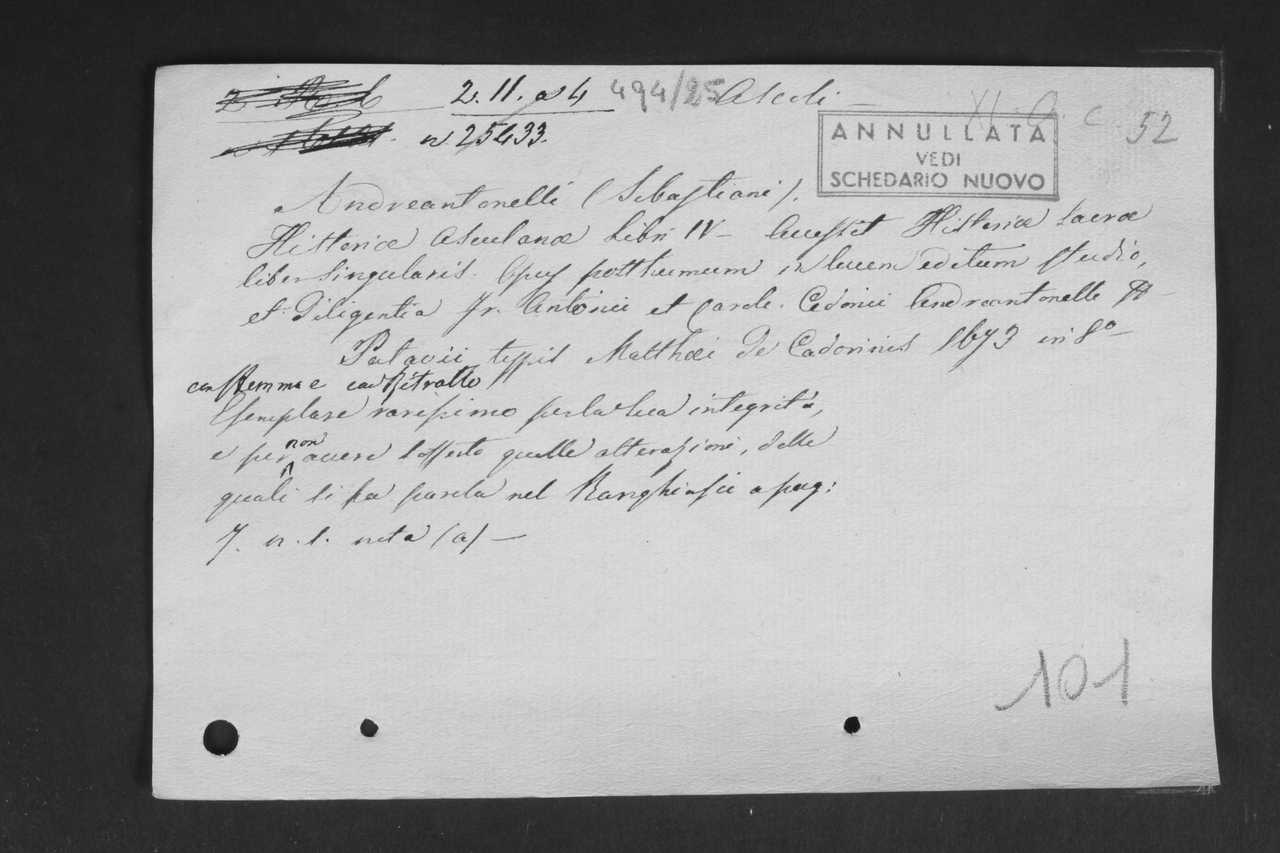 2. 11. a 4 494/25 Ascoli
n 25433. XI. C 52
ANNULLATA
VEDI
SCHEDARIO NUOVO
Andreantonelli (Sebastiani).
Historiæ Asculanæ Libri IV - Accessit Historiæ Sacræ
liber singularis. Opus posthumum in lucem editum studio,
et Diligentia Fr. Antonii et Carole. Cedonii Andreantonelle
Patavii typis Matthæi de Cadorinis 1673 in 8º
con stemma e con Ritratto
Esemplare rarissimo per la sua integrità,
e per non avere sofferto quelle alterazioni, delle
quali si fa parola nel Ranghiasci a pag:
7. n. 1. nota (a) -
101